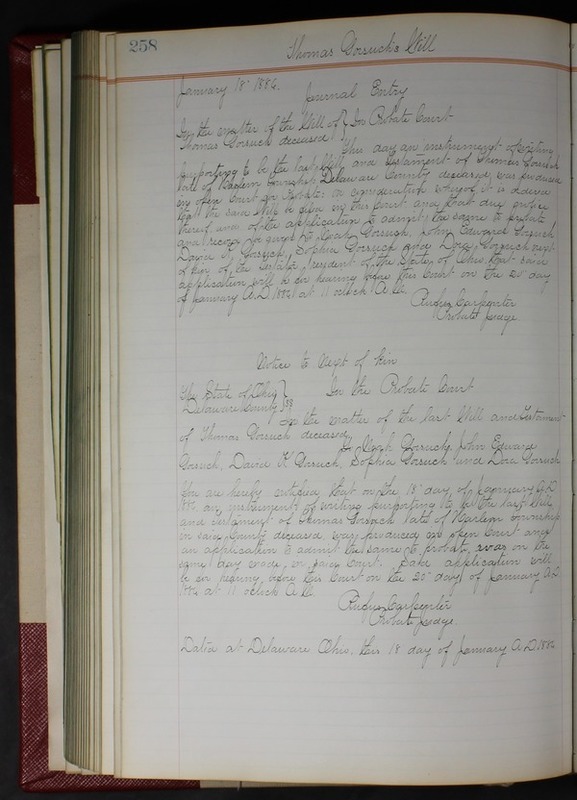 258
Thomas Gorsuch's Will
January 18" 1886.
Journal Entry
In the matter of the Will of } In Probate Court
Thomas Gorsuch deceased
This day an instrument of writing
purporting to be the last Will and Testament of Thomas Gorsuch
late of Harlem Township Delaware County deceased was produced
in open Court for Probate: in consideration whereof it is ordered
that the said Will be filed in this Court and that due notice
thereof and of the application to admit the same to probate
and record be given to Noah Gorsuch, John Edward Gorsuch
David K Gorsuch, Sophia Gorsuch and Dora Gorsuch next
of kin of the testator, resident of the State of Ohio, that said
application will be for hearing before this Court on the 20" day
of January A.D. 1886 at 11 oclock A.M.
Rufus Carpenter
Probate Judge
Notice to Next of Kin
The State of Ohio } In the Probate Court
Delaware County } SS
In the matter of the last Will and Testament
of Thomas Gorsuch deceased
To Noah Gorsuch, John Edward
Gorsuch, David K Gorsuch, Sophia Gorsuch and Dora Gorsuch
You are hereby notified that on the 18" day of January A.D
1886 an instrument of writing purporting to be the last Will
and testament of Thomas Gorsuch late of Harlem township
in said County deceased was produced in open Court and
an application to admit the same to probate, was on the
same day made in said Court. Said application will
be for hearing before this Court on the 20" day of January A.D
1886 at 11 oclock A.M.
Rufus Carpenter
Probate Judge
Dated at Delaware Ohio, this 18 day of January A.D. 1886